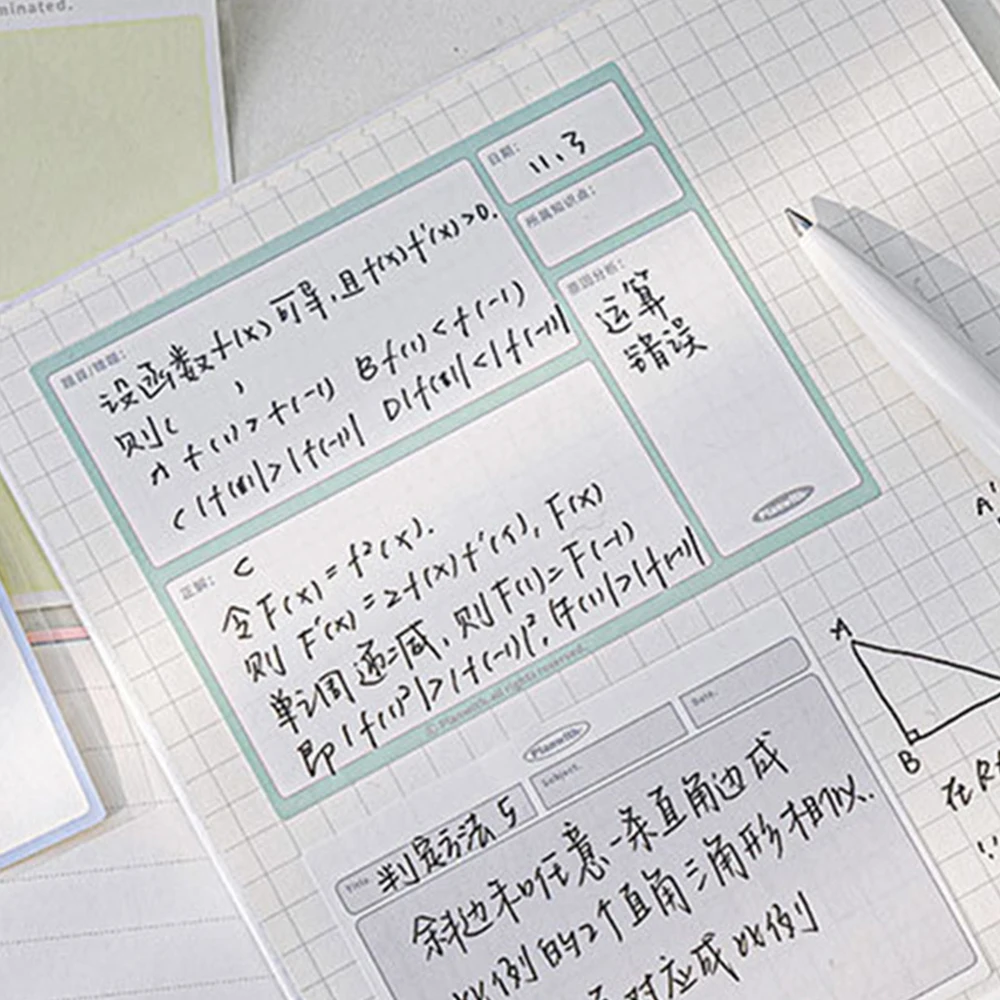 minated.
日期:
11.3
所属知识点:
原因分析:
运算
错误
Planwith
题目/错题:
设函数f(x)可导,且f(x)f'(x)>0.
则( )
A f(1)>f(-1) B f(1)<f(-1)
C |f(1)|>|f(-1)| D |f(1)|<|f(-1)|
正解:
C
令F(x)=f²(x).
则 F'(x)=2f(x)f'(x), F(x)
单调递减,则F(1)=F(-1)
即|f(1)²|>|f(-1)|²,
|f(1)|>|f(-1)|
© Planwith. all rights reserved.
Planwith
Title.
判定方法5
Subject.
Date.
斜边和任意一条直角边成
比例的2个直角三角形相似.
对应成比例
A'
A
B
在Rt